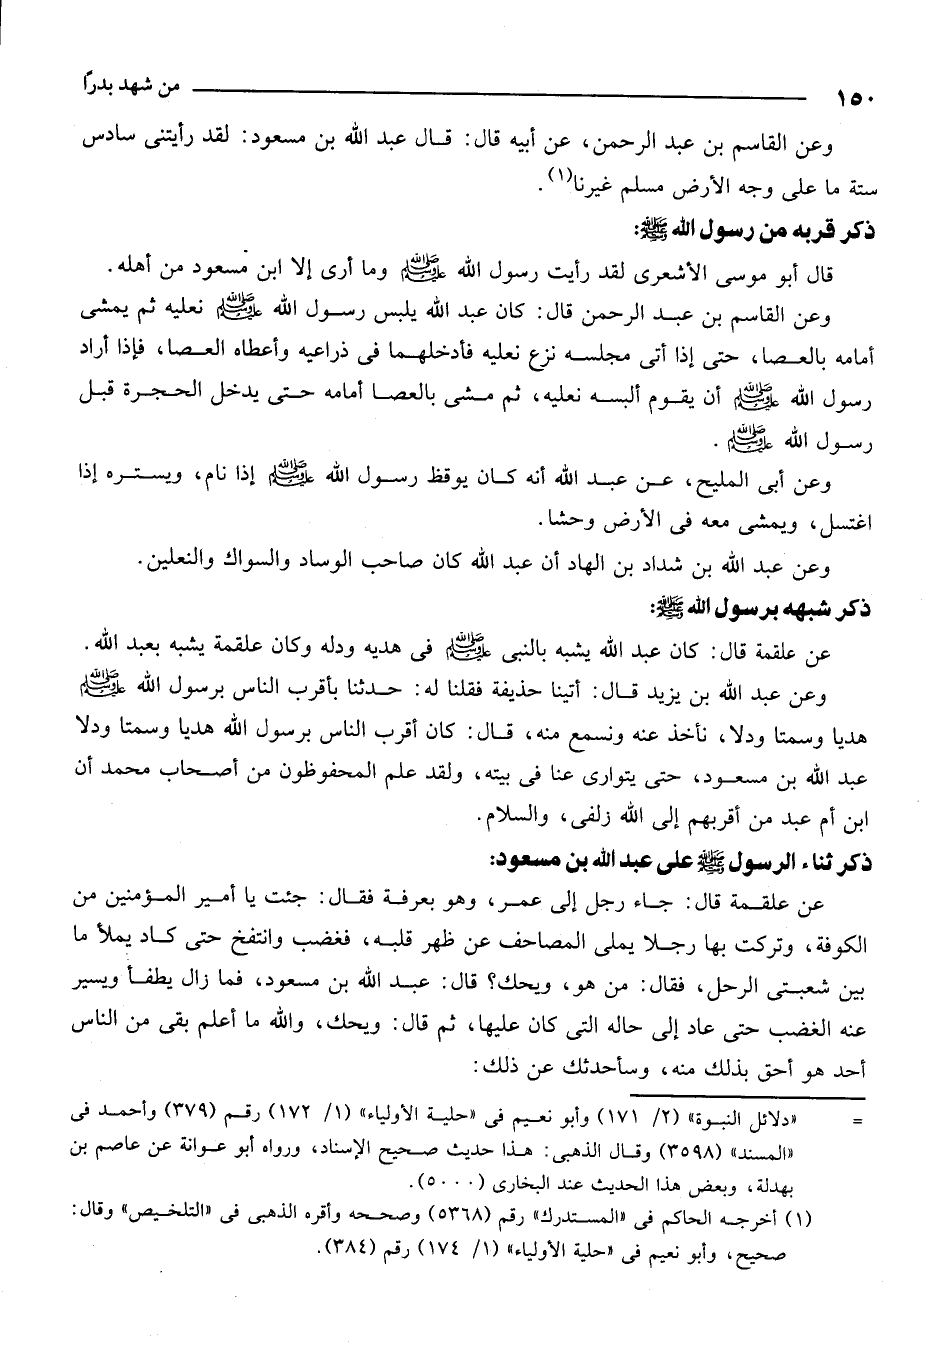 ١٥٠ من شهد بدرًا
وعن القاسم بن عبد الرحمن، عن أبيه قال: قال عبد الله بن مسعود: لقد رأيتنى سادس
ستة ما على وجه الأرض مسلم غيرنا(١).
ذكر قربه من رسول الله ﷺ:
قال أبو موسى الأشعرى لقد رأيت رسول الله ﷺ وما أرى إلا ابن مسعود من أهله.
وعن القاسم بن عبد الرحمن قال: كان عبد الله يلبس رسول الله ﷺ نعليه ثم يمشى
أمامه بالعصا، حتى إذا أتى مجلسه نزع نعليه فأدخلهما فى ذراعيه وأعطاه العصا، فإذا أراد
رسول الله ﷺ أن يقوم ألبسه نعليه، ثم مشى بالعصا أمامه حتى يدخل الحجرة قبل
رسول الله ﷺ.
وعن أبى المليح، عن عبد الله أنه كان يوقظ رسول الله ﷺ إذا نام، ويستره إذا
اغتسل، ويمشى معه فى الأرض وحشا.
وعن عبد الله بن شداد بن الهاد أن عبد الله كان صاحب الوساد والسواك والنعلين.
ذكر شبهه برسول الله ﷺ:
عن علقمة قال: كان عبد الله يشبه بالنبى ﷺ فى هديه ودله وكان علقمة يشبه بعبد الله.
وعن عبد الله بن يزيد قال: أتينا حذيفة فقلنا له: حدثنا بأقرب الناس برسول الله ﷺ
هديا وسمتا ودلا، نأخذ عنه ونسمع منه، قال: كان أقرب الناس برسول الله هديا وسمتا ودلا
عبد الله بن مسعود، حتى يتوارى عنا فى بيته، ولقد علم المحفوظون من أصحاب محمد أن
ابن أم عبد من أقربهم إلى الله زلفى، والسلام.
ذكر ثناء الرسول ﷺ على عبد الله بن مسعود:
عن علقمة قال: جاء رجل إلى عمر، وهو بعرفة فقال: جئت يا أمير المؤمنين من
الكوفة، وتركت بها رجلا يملى المصاحف عن ظهر قلبه، فغضب وانتفخ حتى كاد يملأ ما
بين شعبتى الرحل، فقال: من هو، ويحك؟ قال: عبد الله بن مسعود، فما زال يطفأ ويسير
عنه الغضب حتى عاد إلى حاله التى كان عليها، ثم قال: ويحك، والله ما أعلم بقى من الناس
أحد هو أحق بذلك منه، وسأحدثك عن ذلك:
= «دلائل النبوة» (٢/ ١٧١) وأبو نعيم فى «حلية الأولياء» (١/ ١٧٢) رقم (٣٧٩) وأحمد فى
«المسند» (٣٥٩٨) وقال الذهبى: هذا حديث صحيح الإسناد، ورواه أبو عوانة عن عاصم بن
بهدلة، وبعض هذا الحديث عند البخارى (٥٠٠٠).
(١) أخرجه الحاكم فى «المستدرك» رقم (٥٣٦٨) وصححه وأقره الذهبى فى «التلخيص» وقال:
صحيح، وأبو نعيم فى «حلية الأولياء» (١/ ١٧٤) رقم (٣٨٤).